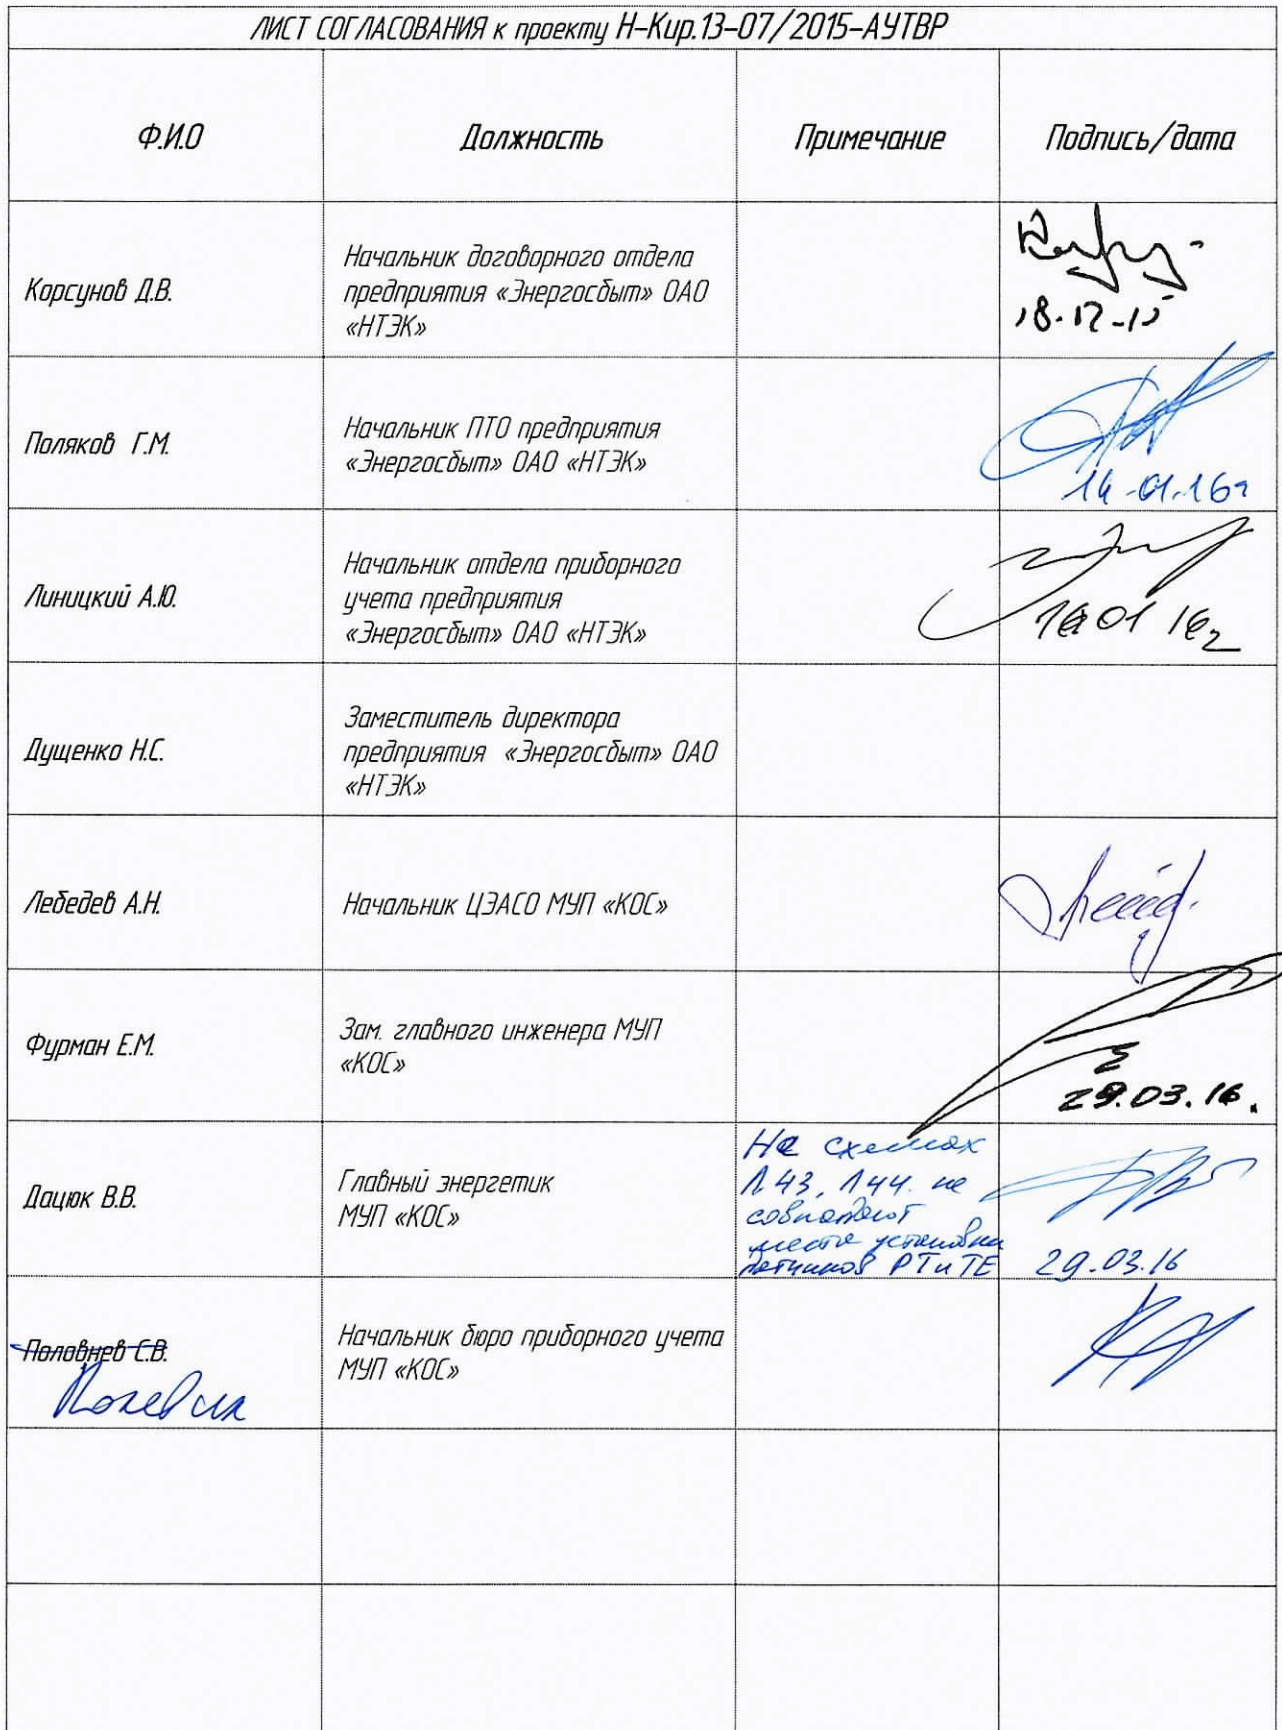 ЛИСТ СОГЛАСОВАНИЯ к проекту Н-Кир.13-07/2015-АУТВР
Ф.И.О
Должность
Примечание
Подпись/дата
Корсунов Д.В.
Начальник договорного отдела
предприятия «Энергосбыт» ОАО
«НТЭК»
18.12-15
Поляков Г.М.
Начальник ПТО предприятия
«Энергосбыт» ОАО «НТЭК»
14.01.16г
Линицкий А.Ю.
Начальник отдела приборного
учета предприятия
«Энергосбыт» ОАО «НТЭК»
01 16г
Дущенко Н.С.
Заместитель директора
предприятия «Энергосбыт» ОАО
«НТЭК»
Лебедев А.Н.
Начальник ЦЭАСО МУП «КОС»
Фурман Е.М.
Зам. главного инженера МУП
«КОС»
29.03.16.
Дацюк В.В.
Главный энергетик
МУП «КОС»
На схемах
Л43, Л44. не
совпадают
места установки
датчиков РТ и ТЕ
29.03.16
Половнев С.В.
Начальник бюро приборного учета
МУП «КОС»